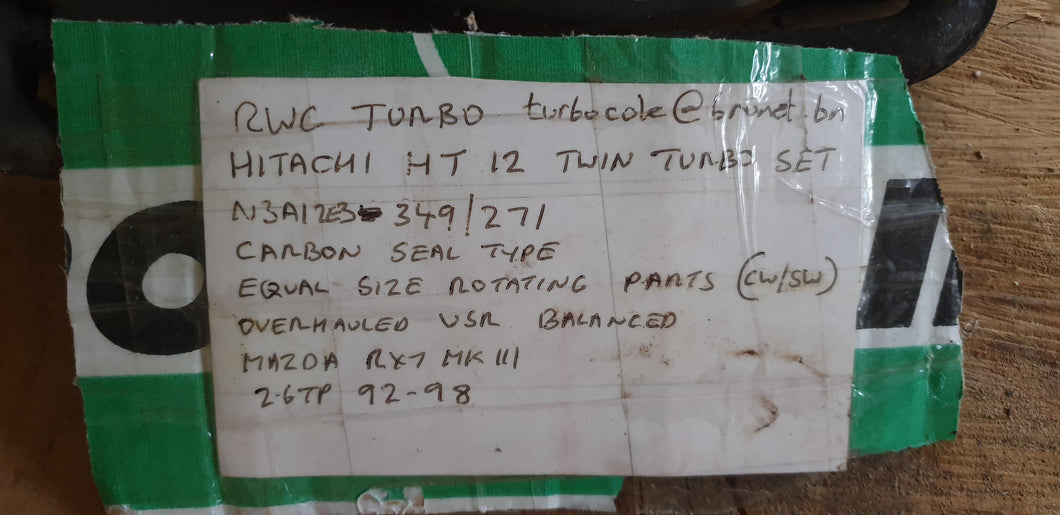 RWC TURBO turbocole@brunet.bn
HITACHI HT 12 TWIN TURBO SET
N3A12E3 349/271
CARBON SEAL TYPE
EQUAL SIZE ROTATING PARTS (CW/SW)
OVERHAULED VSR BALANCED
MAZDA RX7 MK III
2.6TP 92-98